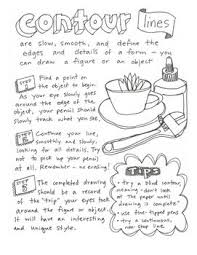 contour lines
are slow, smooth, and define the
edges and details of a form - you
can draw a figure or an object
Step 1 Find a point on
the object to begin.
As your eye slowly goes
around the edge of the
object, your pencil should
slowly track what you see.
Step 2 Continue your line,
smoothly and slowly,
looking at all details. Try
not to pick up your pencil
at all. Remember - no erasing!
Step 3 The completed drawing
should be a record
of the "trip" your eyes took
around the figure or object.
It will have an interesting
and unique style.
Tips
• try a blind contour,
meaning - don't look
at the paper until
drawing is complete
• use felt tipped pens
• try a continuous,
non-stop line.